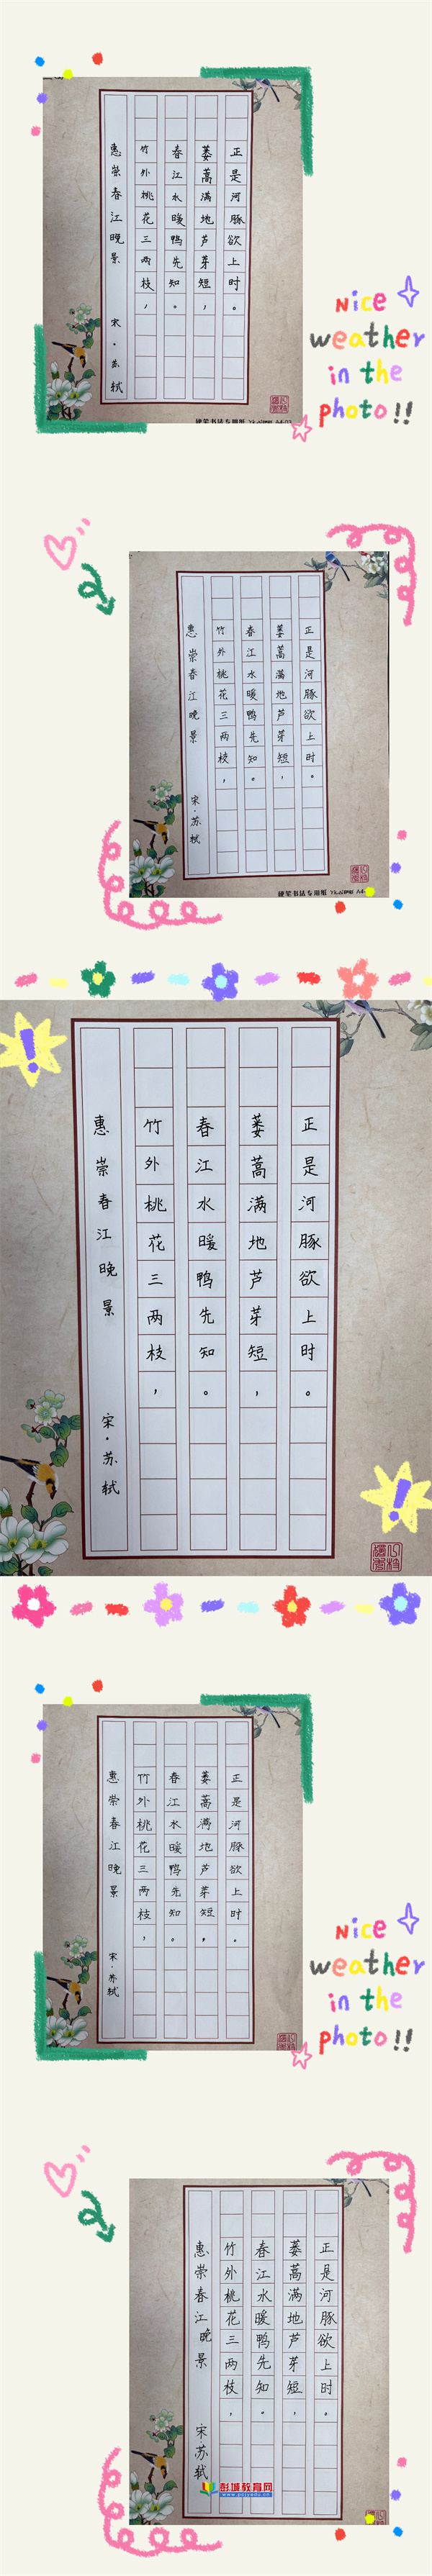 惠崇春江晚景 宋·苏轼
竹外桃花三两枝，
春江水暖鸭先知。
蒌蒿满地芦芽短，
正是河豚欲上时。
Nice
weather
in the
photo!!
惠崇春江晚景 宋·苏轼
竹外桃花三两枝，
春江水暖鸭先知。
蒌蒿满地芦芽短，
正是河豚欲上时。
硬笔书法专用纸
惠崇春江晚景 宋·苏轼
竹外桃花三两枝，
春江水暖鸭先知。
蒌蒿满地芦芽短，
正是河豚欲上时。
惠崇春江晚景 宋·苏轼
竹外桃花三两枝，
春江水暖鸭先知。
蒌蒿满地芦芽短，
正是河豚欲上时。
Nice
weather
in the
photo!!
惠崇春江晚景 宋·苏轼
竹外桃花三两枝，
春江水暖鸭先知。
蒌蒿满地芦芽短，
正是河豚欲上时。
彭城教育网